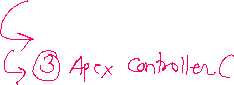 ③ Apex Controller (